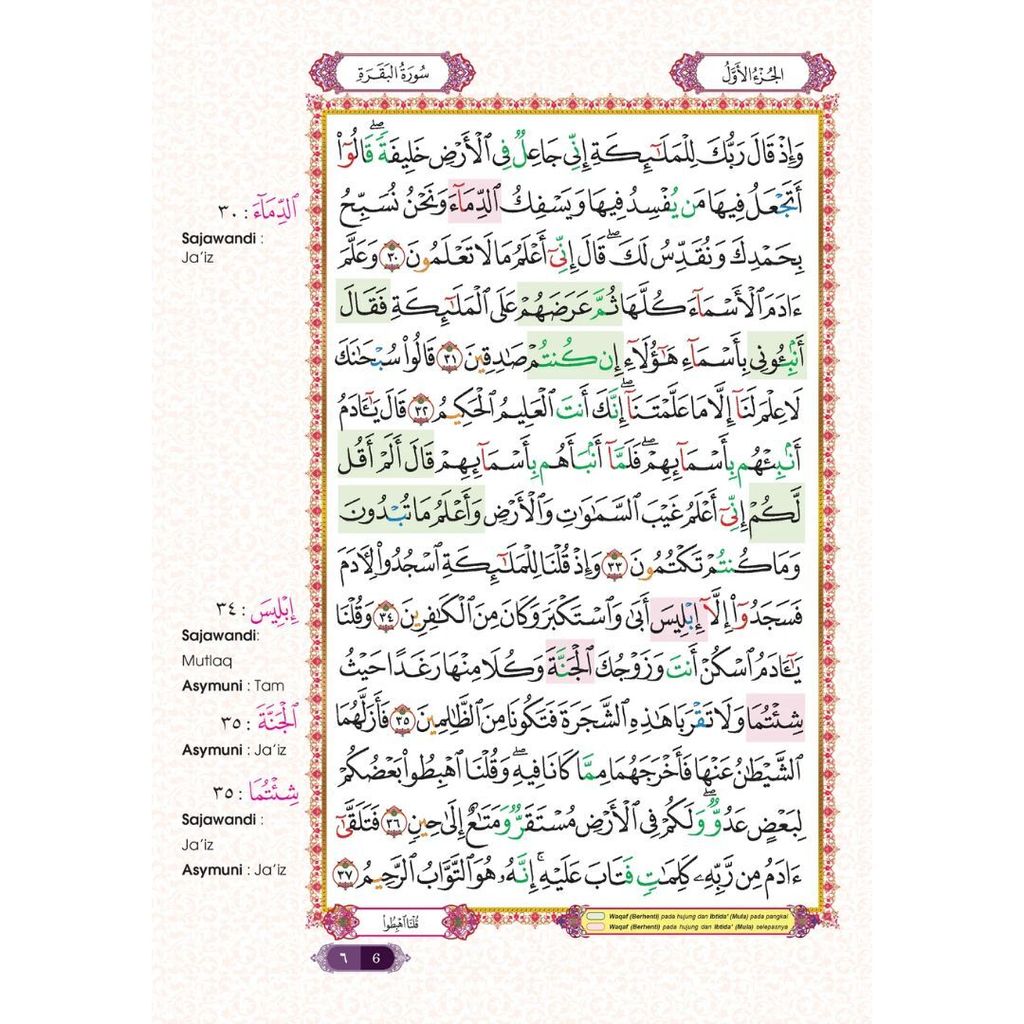 الجُزْءُ الأَوَّلُ
سُورَةُ البَقَرَةِ
وَإِذْ قَالَ رَبُّكَ لِلْمَلَٰٓئِكَةِ إِنِّي جَاعِلٌ فِي ٱلْأَرْضِ خَلِيفَةً ۖ قَالُوٓا۟
أَتَجْعَلُ فِيهَا مَن يُفْسِدُ فِيهَا وَيَسْفِكُ ٱلدِّمَآءَ وَنَحْنُ نُسَبِّحُ
بِحَمْدِكَ وَنُقَدِّسُ لَكَ ۖ قَالَ إِنِّيٓ أَعْلَمُ مَا لَا تَعْلَمُونَ ٣٠ وَعَلَّمَ
ءَادَمَ ٱلْأَسْمَآءَ كُلَّهَا ثُمَّ عَرَضَهُمْ عَلَى ٱلْمَلَٰٓئِكَةِ فَقَالَ
أَنۢبِـُٔونِي بِأَسْمَآءِ هَٰٓؤُلَآءِ إِن كُنتُمْ صَٰدِقِينَ ٣١ قَالُوا۟ سُبْحَٰنَكَ
لَا عِلْمَ لَنَآ إِلَّا مَا عَلَّمْتَنَآ ۖ إِنَّكَ أَنتَ ٱلْعَلِيمُ ٱلْحَكِيمُ ٣٢ قَالَ يَٰٓـَٔادَمُ
أَنۢبِئْهُم بِأَسْمَآئِهِمْ ۖ فَلَمَّآ أَنۢبَأَهُم بِأَسْمَآئِهِمْ قَالَ أَلَمْ أَقُل
لَّكُمْ إِنِّيٓ أَعْلَمُ غَيْبَ ٱلسَّمَٰوَٰتِ وَٱلْأَرْضِ وَأَعْلَمُ مَا تُبْدُونَ
وَمَا كُنتُمْ تَكْتُمُونَ ٣٣ وَإِذْ قُلْنَا لِلْمَلَٰٓئِكَةِ ٱسْجُدُوا۟ لِـَٔادَمَ
فَسَجَدُوٓا۟ إِلَّآ إِبْلِيسَ أَبَىٰ وَٱسْتَكْبَرَ وَكَانَ مِنَ ٱلْكَٰفِرِينَ ٣٤ وَقُلْنَا
يَٰٓـَٔادَمُ ٱسْكُنْ أَنتَ وَزَوْجُكَ ٱلْجَنَّةَ وَكُلَا مِنْهَا رَغَدًا حَيْثُ
شِئْتُمَا وَلَا تَقْرَبَا هَٰذِهِ ٱلشَّجَرَةَ فَتَكُونَا مِنَ ٱلظَّٰلِمِينَ ٣٥ فَأَزَلَّهُمَا
ٱلشَّيْطَٰنُ عَنْهَا فَأَخْرَجَهُمَا مِمَّا كَانَا فِيهِ ۖ وَقُلْنَا ٱهْبِطُوا۟ بَعْضُكُمْ
لِبَعْضٍ عَدُوٌّ ۖ وَلَكُمْ فِي ٱلْأَرْضِ مُسْتَقَرٌّ وَمَتَٰعٌ إِلَىٰ حِينٍ ٣٦ فَتَلَقَّىٰٓ
ءَادَمُ مِن رَّبِّهِۦ كَلِمَٰتٍ فَتَابَ عَلَيْهِ ۚ إِنَّهُۥ هُوَ ٱلتَّوَّابُ ٱلرَّحِيمُ ٣٧
ٱلدِّمَآءَ : ٣٠
Sajawandi :
Ja’iz
إِبْلِيسَ : ٣٤
Sajawandi:
Mutlaq
Asymuni : Tam
ٱلْجَنَّةَ : ٣٥
Asymuni : Ja’iz
شِئْتُمَا : ٣٥
Sajawandi :
Ja’iz
Asymuni : Ja’iz
Waqaf (Berhenti) pada hujung dan Ibtida' (Mula) pada pangkal
Waqaf (Berhenti) pada hujung dan Ibtida' (Mula) selepasnya
قُلْنَا ٱهْبِطُوا۟
٦ 6